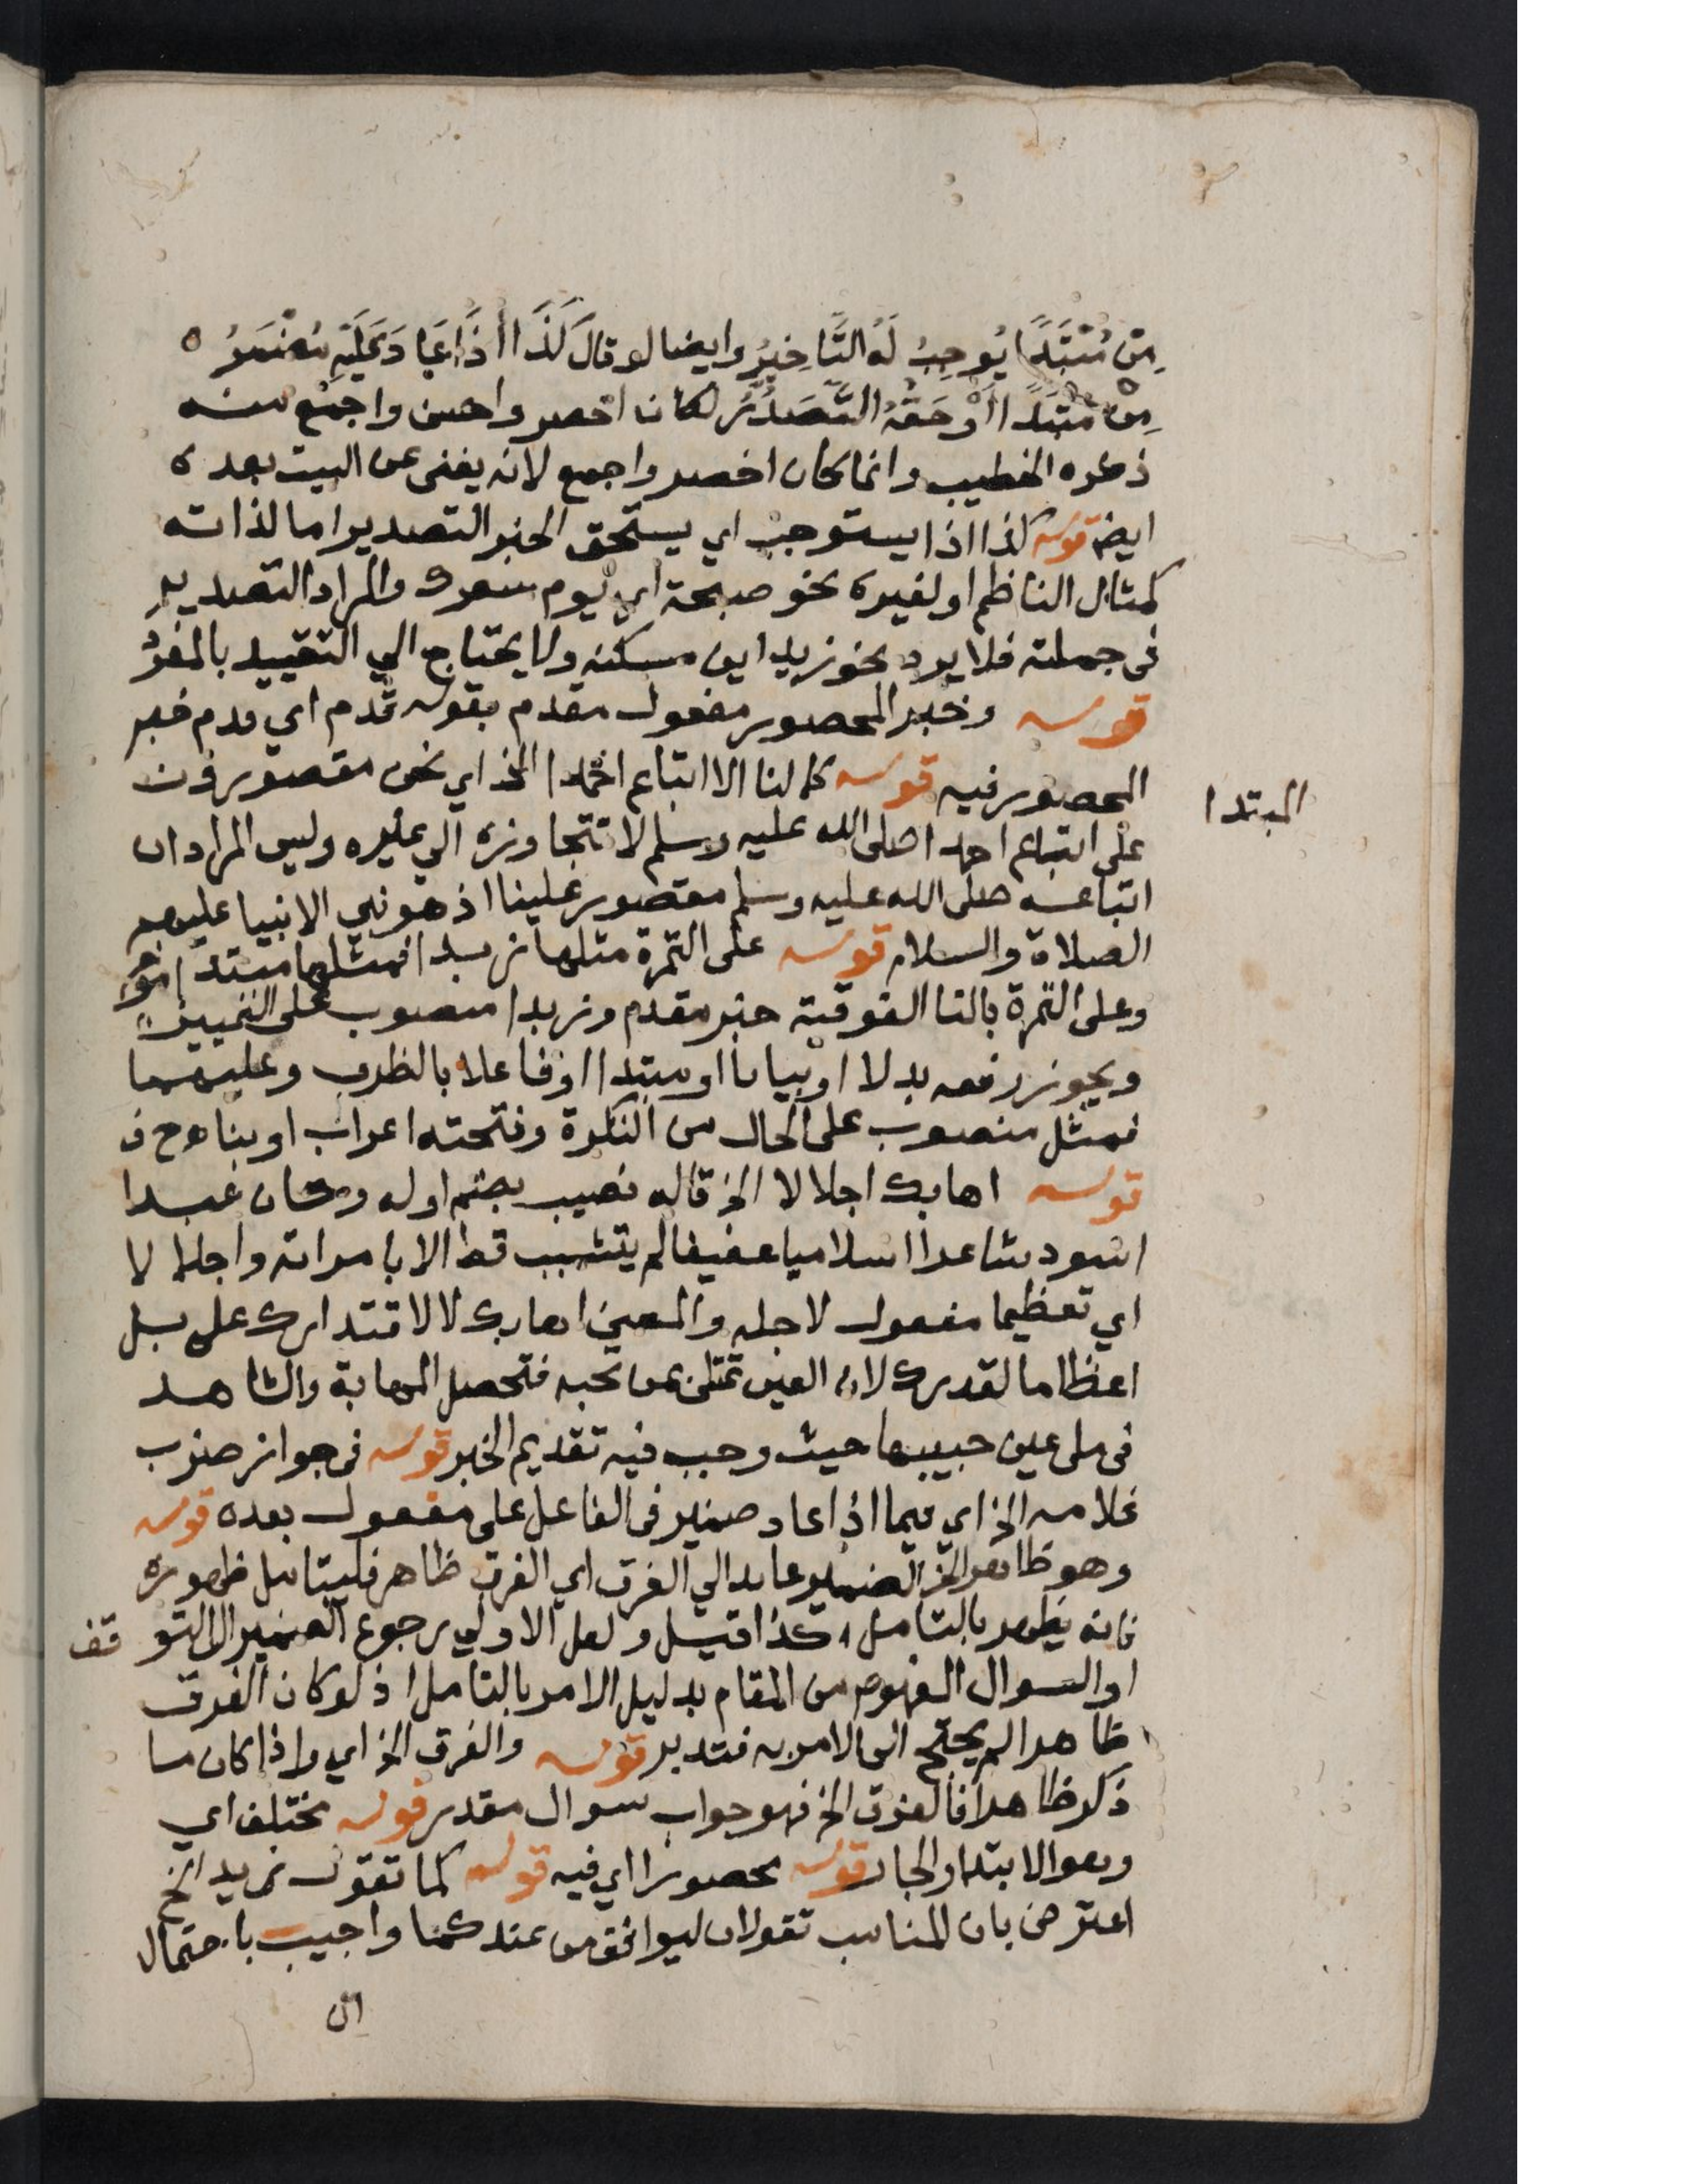 مِنْ مُبْتَدًا يُوجِبُ لَهُ التَّاخِيرُ وايضا لو قال كَذَا اذَا عَادَ عَلَيْهِ مُضْمَرُ ه
مِنْ مُبْتَدًا اَوْ حَقُّهُ التَّصَدُّرُ لكان اخصر واحسن واجمع منه
ذكره الخطيب وانما كان اخصر واجمع لانه يغنى عن البيت بعده
ايضا قوله كذا اذا يستوجب اي يستحق الخبر التصدير اما لذاته
كمثال الناظم او لغيره نحو صبيحة اي يوم سفرك والمراد التصدير
فى جملته فلا يرد نحو زيد اين مسكنه ولا يحتاج الي التقييد بالمفرد
قوله وخبر المحصور مفعول مقدم بقوله قدم اي قدم خبر
المحصور فيه قوله كما لنا الا اتباع احمدا الخ اي نحن مقصورون
المبتدا
على اتباع احمدا صلى الله عليه وسلم لا نتجاوزه الي غيره وليس المراد ان
اتباعه صلى الله عليه وسلم مقصور علينا اذ هو نبي الانبيا عليهم
الصلاة والسلام قوله على التمرة مثلها زبدا فمثلها مبتدا مؤخر
وعلى التمرة بالتا الفوقية خبر مقدم وزبدا منصوب على التمييز
ويجوز رفعه بدلا او بيانا او مبتدا او فاعلا بالظرف وعليهما
فمثل منصوب على الحال من النكرة وفتحته اعراب او بناء ح ف
قوله اهابك اجلالا الخ قاله نصيب بضم اوله وكان عبدا
اسود شاعرا اسلاميا عفيفا لم يتشبب قط الا بامراته واجلالا
اي تعظيما مفعول لاجله والمعنى اهابك لا لاقتدارك على بل
اعظاما لقدرك لان العين تمتلئ بمن تحبه فتحصل المهابة والشاهد
فى ملء عين حبيبها حيث وجب فيه تقديم الخبر قوله فى جواز ضرب
غلامه الخ اي فيما اذا عاد ضمير فى الفاعل على مفعول بعده قوله
وهو ظاهر الخ الضمير عائد الي الفرق اي الفرق ظاهر فليتامل ظهوره
فانه يظهر بالتامل كذا قيل ولعل الاولي رجوع الضمير الى التوقف
او السوال المفهوم من المقام بدليل الامر بالتامل اذ لو كان الفرق
ظاهرا لم يحتج الى الامر به فتدبر قوله والفرق الخ اي واذا كان ما
ذكر ظاهرا فالفرق الخ فهو جواب سوال مقدر قوله مختلف اي
وهو الابتدا والجار قوله محصورا اي فيه قوله كما تقول زيد الخ
اعترض بان المناسب تقولان ليوافق من عندكما واجيب باحتمال
ان